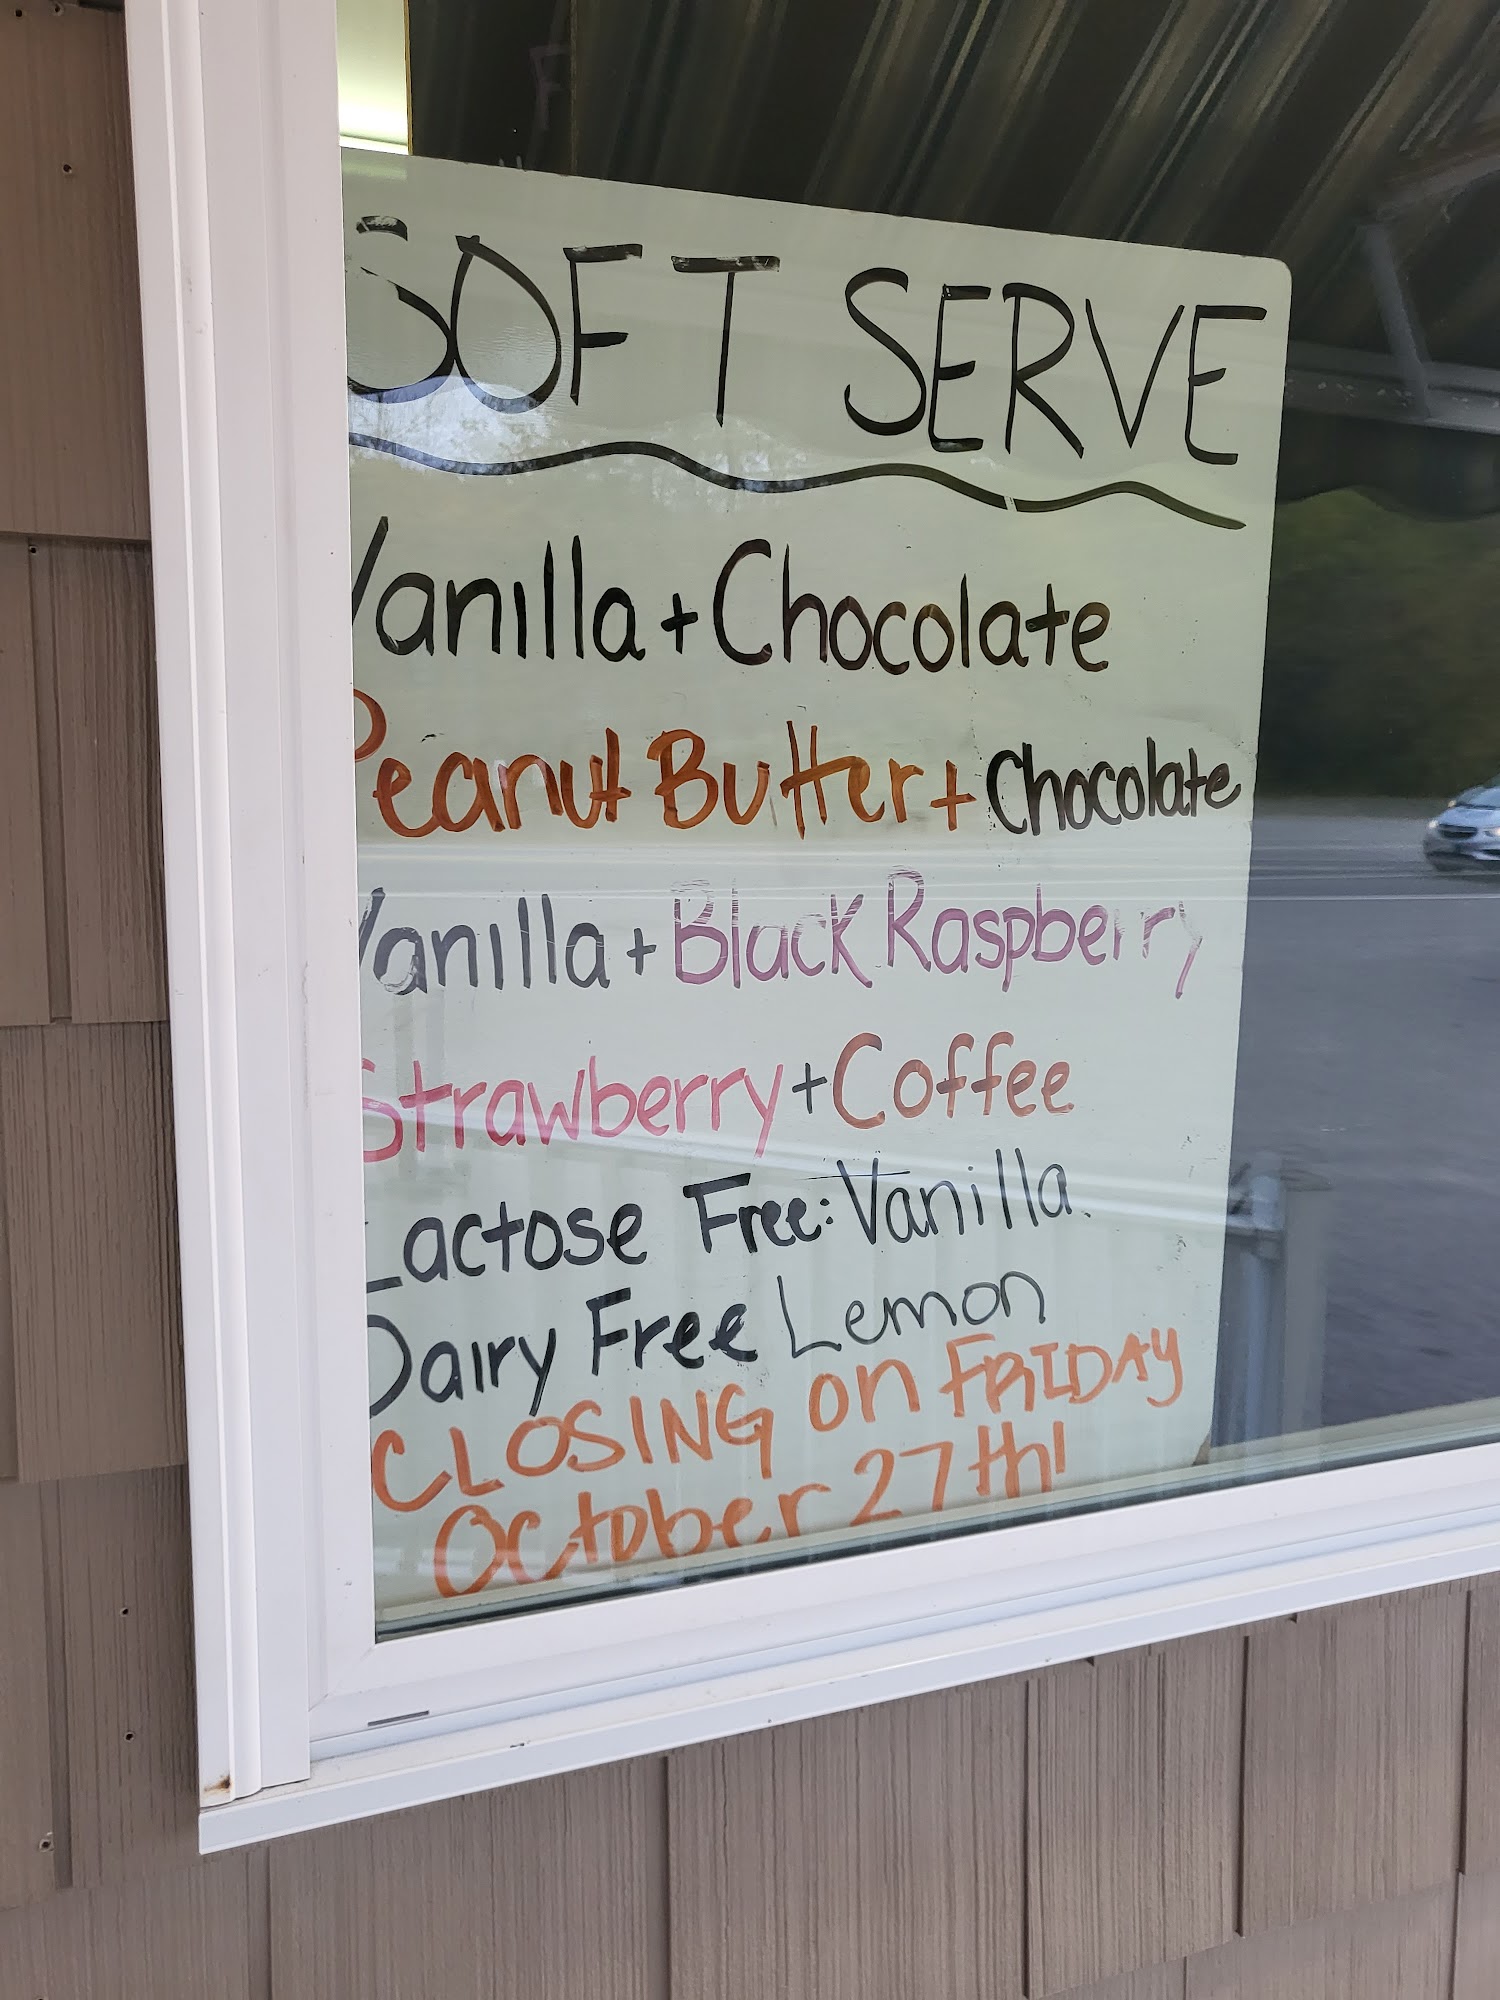 SOFT SERVE
Vanilla + Chocolate
Peanut Butter + Chocolate
Vanilla + Black Raspberry
Strawberry + Coffee
Lactose Free: Vanilla
Dairy Free Lemon
CLOSING on FRIDAY
October 27th!